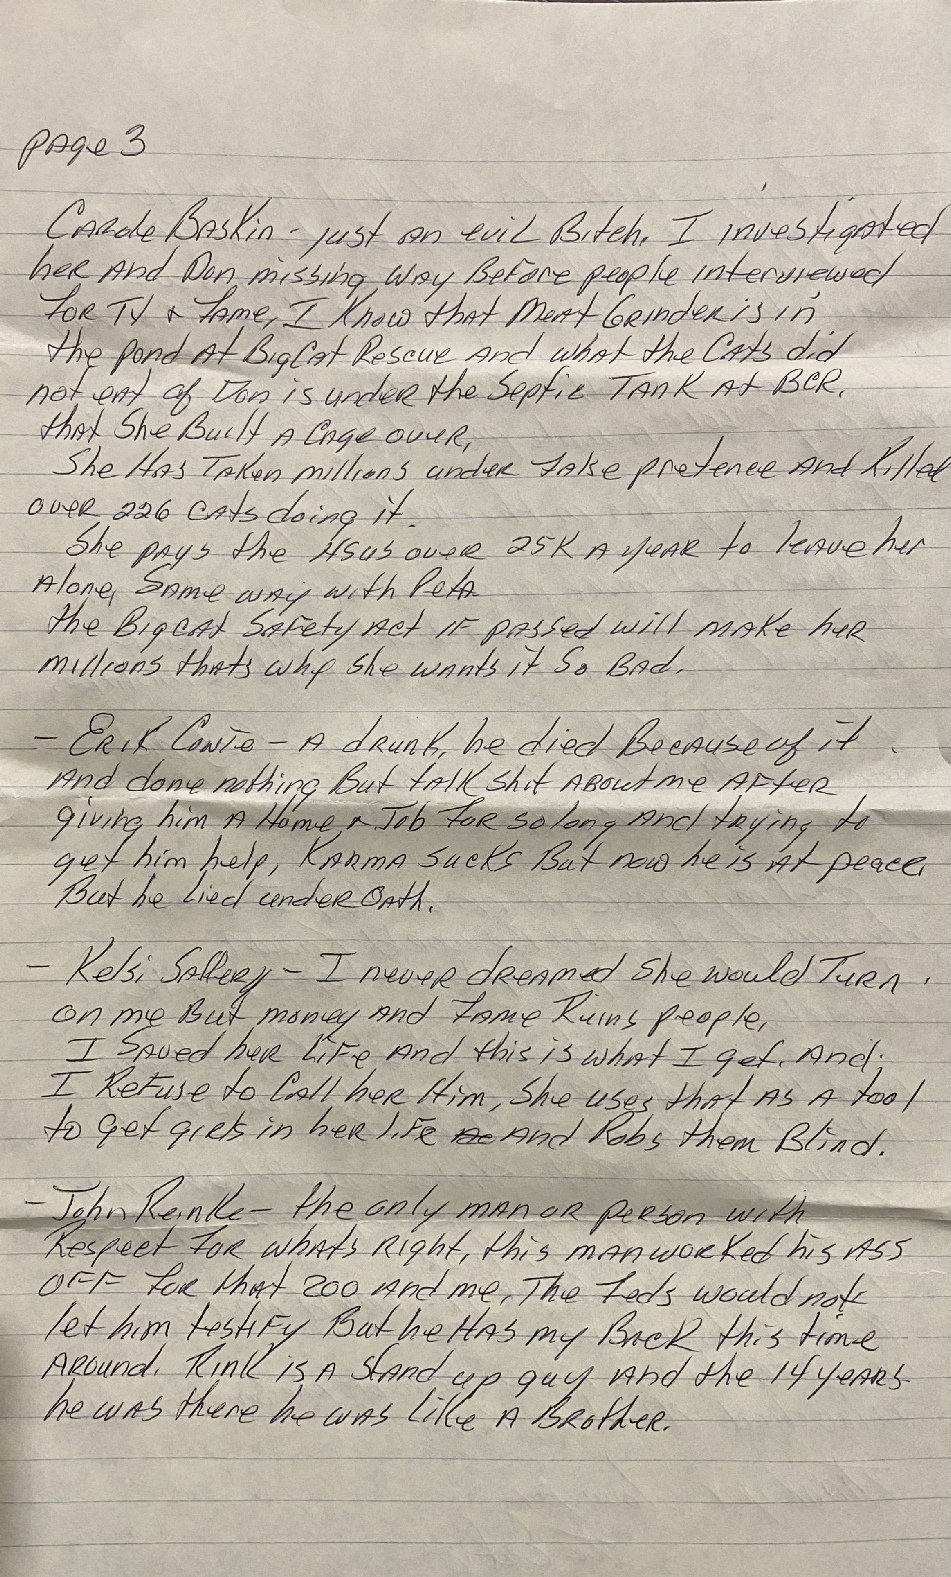 page 3
Carole Baskin - just an evil Bitch. I investigated
her and Don missing way Before people interviewed
for TV & Fame, I Know that Meat Grinder is in
the pond At Big Cat Rescue and what the Cats did
not eat of Don is under the Septic Tank At BCR.
that She Built a Cage over,
She Has Taken millions under false pretence and Killed
over 226 cats doing it.
She pays the HSUS over 25K a year to leave her
Alone, Same way with Peta
the Big cat Safety Act if passed will make her
millions thats why she wants it So Bad.
- Erik Cowie - A drunk, he died Because of it
And done nothing But talk shit About me After
giving him A Home & Job for so long and trying to
get him help, Karma sucks But now he is At peace
But he lied under Oath.
- Kelsi Saffery - I never dreamed she would Turn
on me But money and Fame Ruins people,
I Saved her Life And this is what I get. And
I Refuse to Call her Him, She uses that As A tool
to get girls in her life And Robs them Blind.
- John Reinke - the only man or person with
Respect for whats Right, this man worked his Ass
OFF for that zoo and me, The Feds would not
let him testify But he Has my Back this time
Around. Rink is A Stand up guy and the 14 years
he was there he was like A Brother.